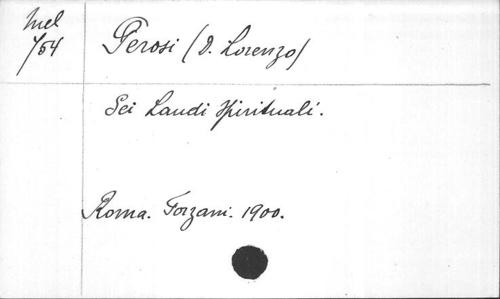 Mel
754
Perosi (D. Lorenzo)
Sei Laudi Spirituali.
Roma. Forzani. 1900.